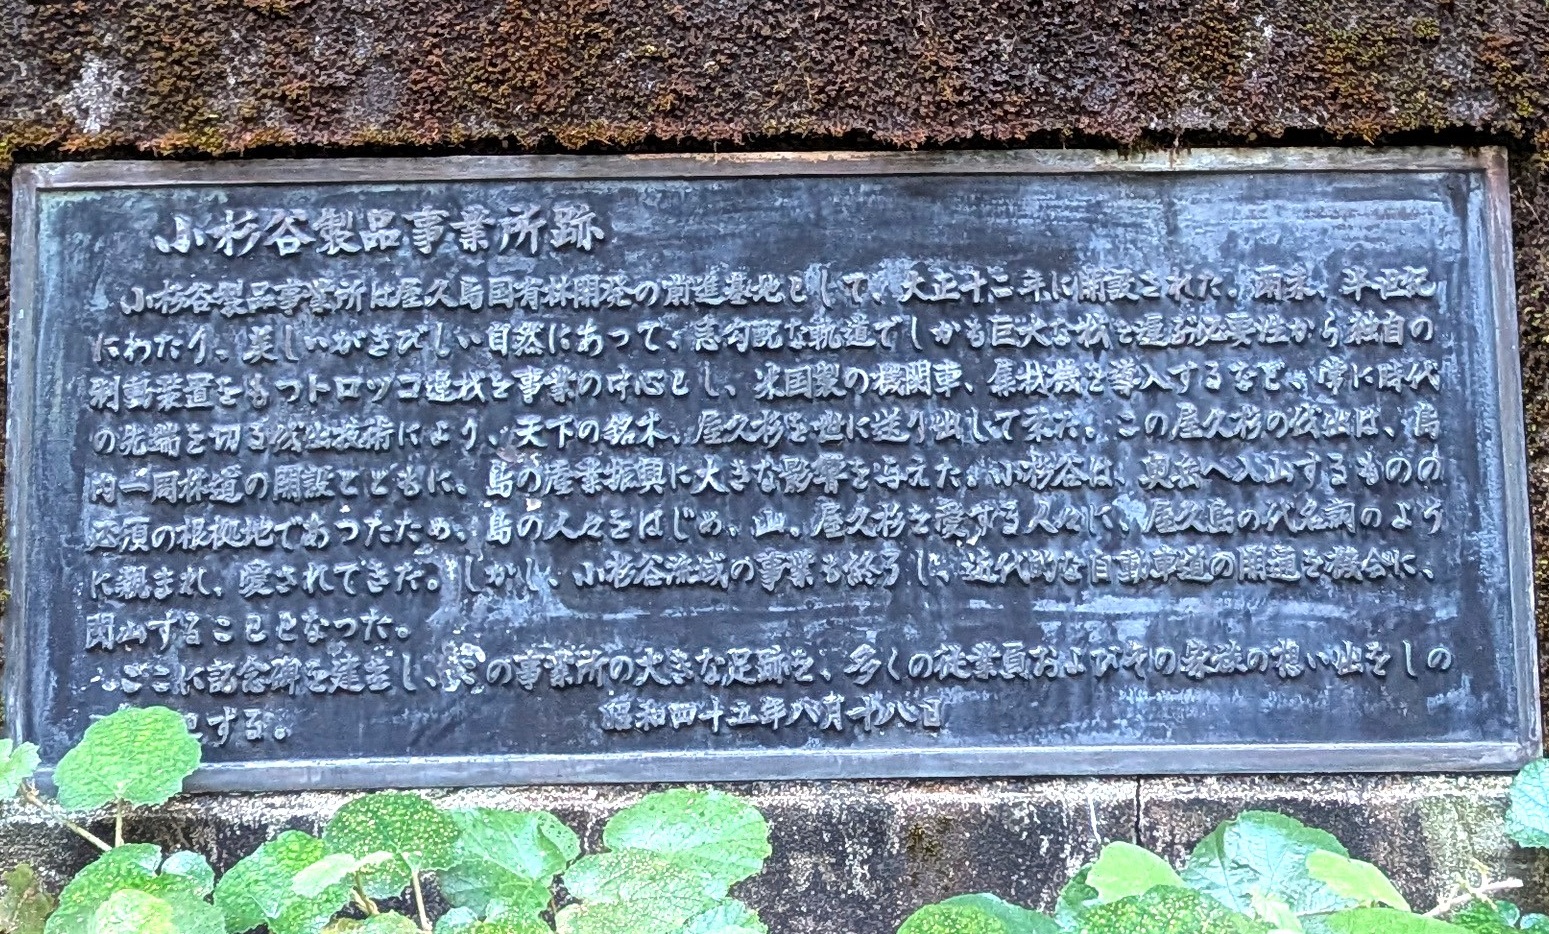 小杉谷製品事業所跡
小杉谷製品事業所は屋久島国有林開発の前進基地として、大正十二年に開設された。爾来、半世紀
にわたり、美しいがきびしい自然にあって、急勾配な軌道でしかも巨大な材を運ぶ必要性から独自の
制動装置をもつトロッコ運材を事業の中心とし、米国製の機関車、集材機を導入するなど、常に時代
の先端を切る伐出技術により、天下の銘木、屋久杉を世に送り出して来た。この屋久杉の伐出は、島
内一周林道の開設とともに、島の産業振興に大きな影響を与えた。小杉谷は、奥岳へ入山するものの
必須の根拠地であったため、島の人々をはじめ、山、屋久杉を愛する人々に、屋久島の代名詞のよう
に親まれ、愛されてきた。しかし、小杉谷流域の事業も終了し、近代的な自動車道の開通を機会に、
閉山することとなった。
ここに記念碑を建立し、この事業所の大きな足跡を、多くの従業員およびその家族の想い出をしの
とする。 昭和四十五年八月十八日